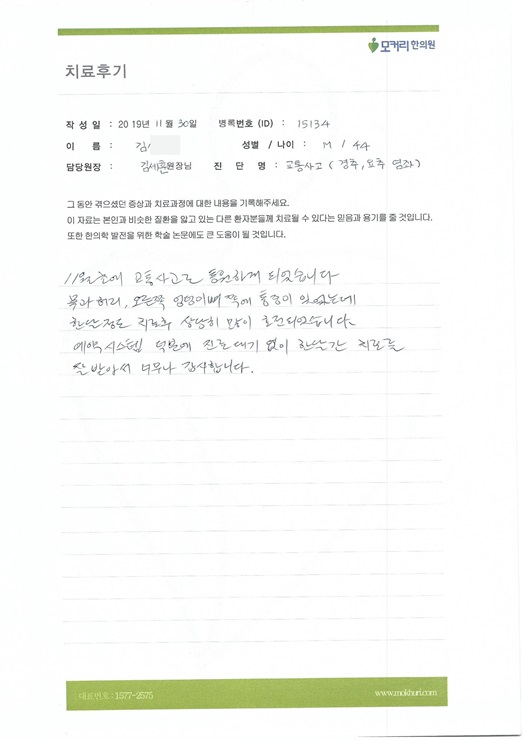 모커리한의원
치료후기
작 성 일 : 2019년 11월 30일 병록번호 (ID) : 15134
이 름 : 김 성별 / 나이 : M / 44
담당원장 : 김세훈원장님 진 단 명 : 교통사고 (경추, 요추 염좌)
그 동안 겪으셨던 증상과 치료과정에 대한 내용을 기록해주세요.
이 자료는 본인과 비슷한 질환을 앓고 있는 다른 환자분들께 치료될 수 있다는 믿음과 용기를 줄 것입니다.
또한 한의학 발전을 위한 학술 논문에도 큰 도움이 될 것입니다.
11월 초에 교통사고로 통원하게 되었습니다
목과 허리, 오른쪽 엉덩이뼈 쪽에 통증이 있었는데
한달정도 치료후 상당히 많이 호전되었습니다.
예약 시스템 덕분에 진료 대기 없이 한달간 치료를
잘 받아서 너무나 감사합니다.
대표번호 : 1577-2575
www.mokhuri.com